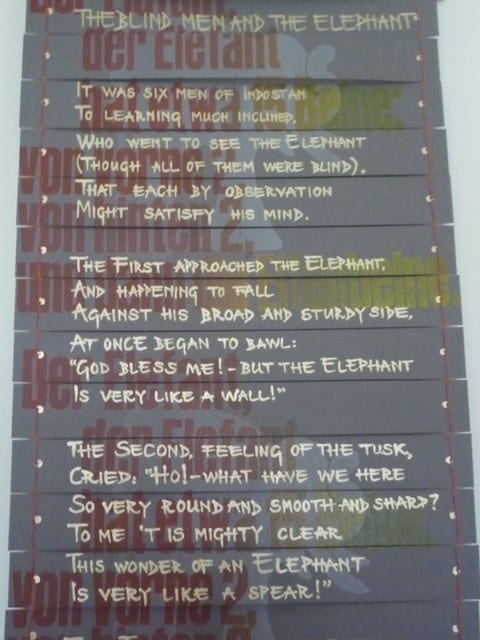 THE BLIND MEN AND THE ELEPHANT
der Elefant
IT WAS SIX MEN OF INDOSTAN
hat etwa
TO LEARNING MUCH INCLINED,
WHO WENT TO SEE THE ELEPHANT
(THOUGH ALL OF THEM WERE BLIND),
von vorne 2,
THAT EACH BY OBSERVATION
MIGHT SATISFY HIS MIND.
von hinten 2,
THE FIRST APPROACHED THE ELEPHANT,
AND HAPPENING TO FALL
AGAINST HIS BROAD AND STURDY SIDE,
AT ONCE BEGAN TO BAWL:
"GOD BLESS ME! - BUT THE ELEPHANT
Der Elefant,
IS VERY LIKE A WALL!"
der Elefant
THE SECOND, FEELING OF THE TUSK,
CRIED: "HO! - WHAT HAVE WE HERE
SO VERY ROUND AND SMOOTH AND SHARP?
hat etwa
TO ME 'T IS MIGHTY CLEAR
THIS WONDER OF AN ELEPHANT
von vorne 2,
IS VERY LIKE A SPEAR!"